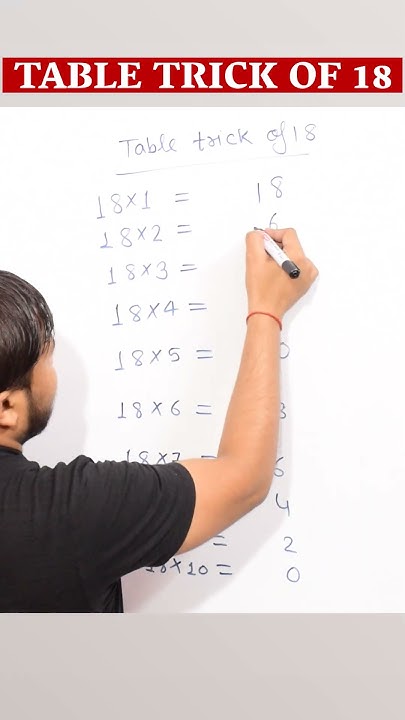 TABLE TRICK OF 18
Table trick of 18
18×1 = 18
18×2 = 6
18×3 =
18×4 =
18×5 = 0
18×6 = 8
18×7 = 6
4
= 2
18×10 = 0